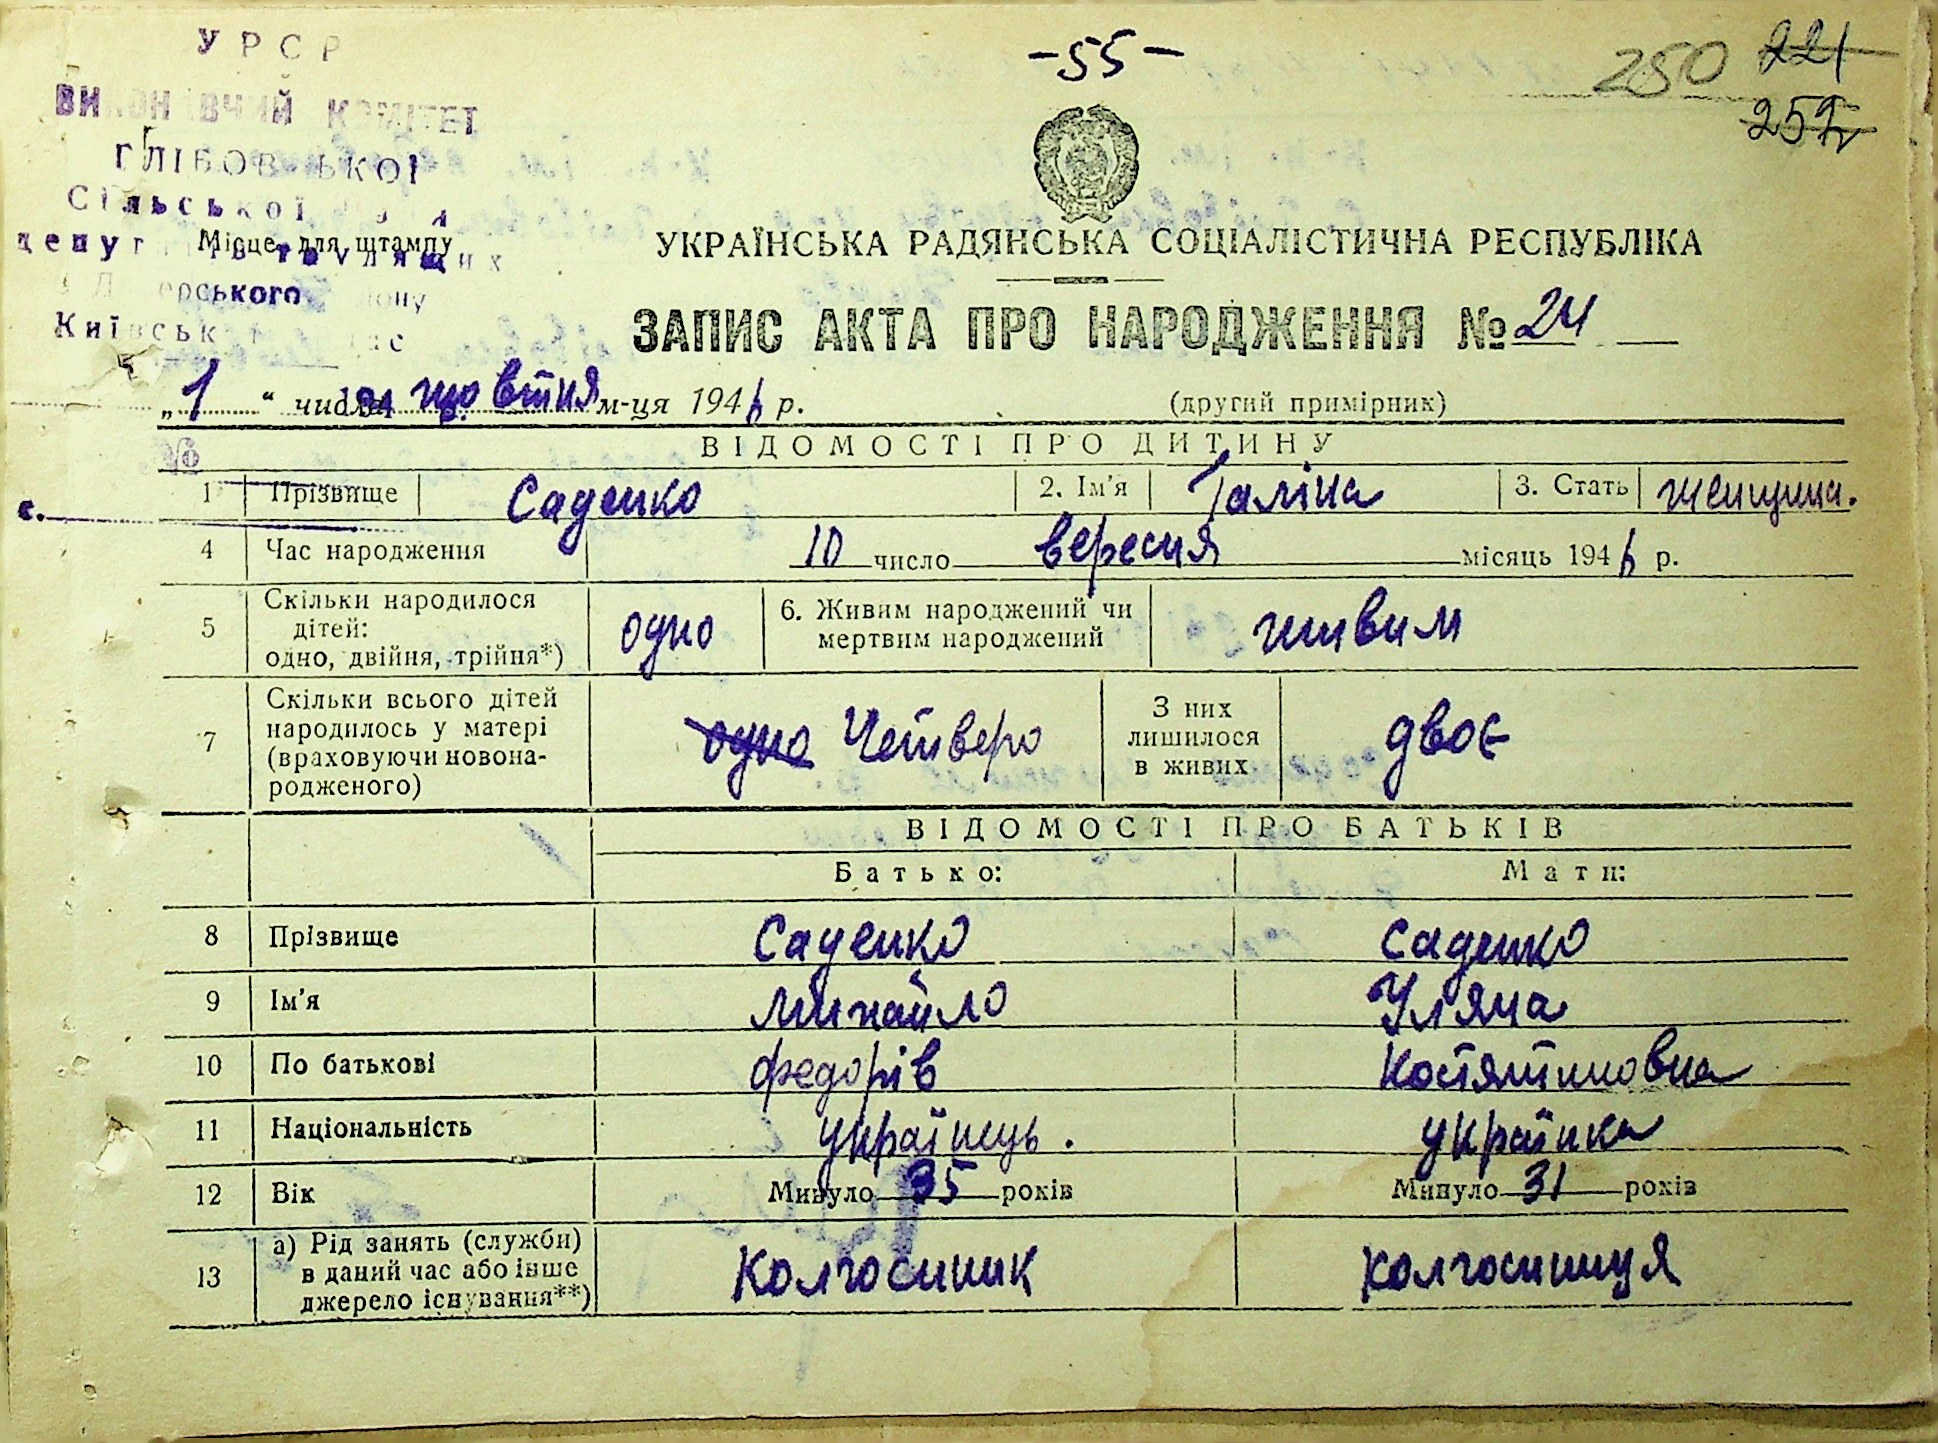 УРСР
ВИКОНАВЧИЙ КОМІТЕТ
ГЛІБОВСЬКОЇ
Сільської
депутатів трудящих
Місце для штампу
Київськ
-55-
250 221
252
УКРАЇНСЬКА РАДЯНСЬКА СОЦІАЛІСТИЧНА РЕСПУБЛІКА
ЗАПИС АКТА ПРО НАРОДЖЕННЯ № 24
„1" числа жовтня м-ця 1946 р. (другий примірник)
ВІДОМОСТІ ПРО ДИТИНУ
№
1 Прізвище Саденко 2. Ім'я Галіна 3. Стать женщина.
с.
4 Час народження 10 число вересня місяць 1946 р.
5 Скільки народилося дітей: одно, двійня, трійня*) одно 6. Живим народжений чи мертвим народжений живим
7 Скільки всього дітей народилось у матері (враховуючи новонародженого) одно Четверо З них лишилося в живих двоє
ВІДОМОСТІ ПРО БАТЬКІВ
Батько: Мати:
8 Прізвище Саденко Саденко
9 Ім'я Михайло Уляна
10 По батькові Федорів Костянтиновна
11 Національність українець. українка
12 Вік Минуло 35 років Минуло 31 років
13 а) Рід занять (служби) в даний час або інше джерело існування**) Колгоспник колгоспниця